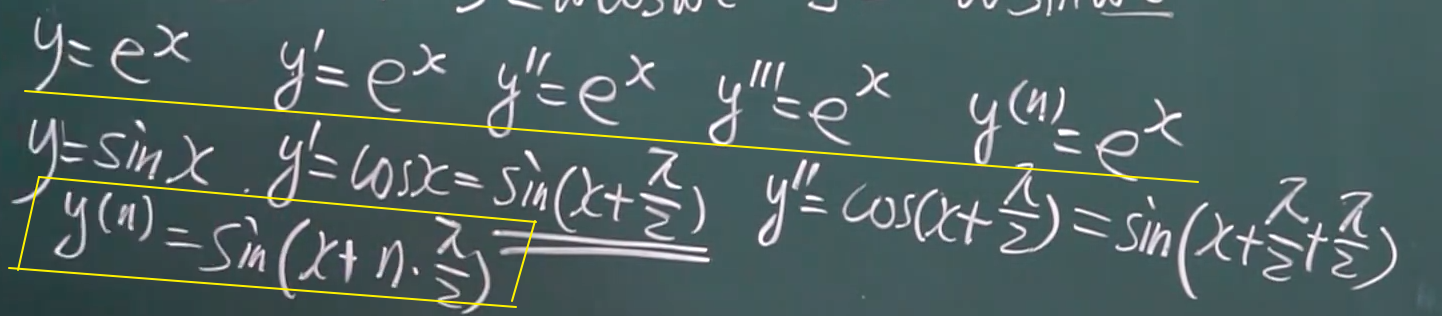 y=eˣ y′=eˣ y″=eˣ y‴=eˣ y⁽ⁿ⁾=eˣ
y=sinx. y′=cosx=sin(x+π/2) y″=cos(x+π/2)=sin(x+π/2+π/2)
y⁽ⁿ⁾=sin(x+n·π/2)